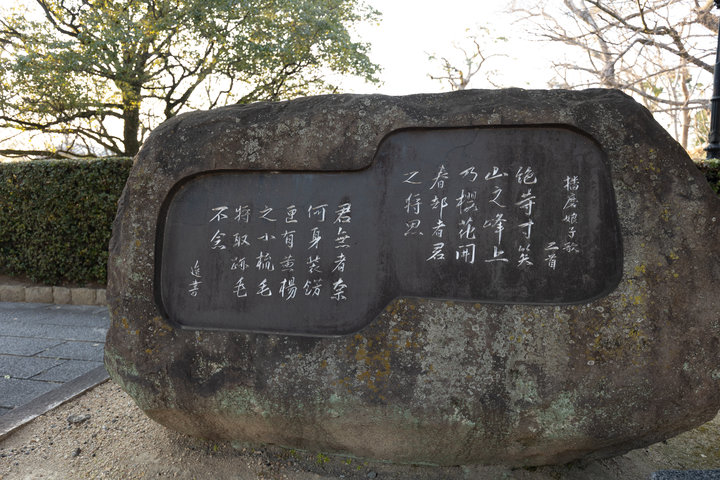 播磨娘子歌
二首
絶等寸笑
山之峰上
乃櫻花開
春部者君
之将思
君無者奈
何身装餝
匣有黄楊
之小梳毛
将取跡毛
不念